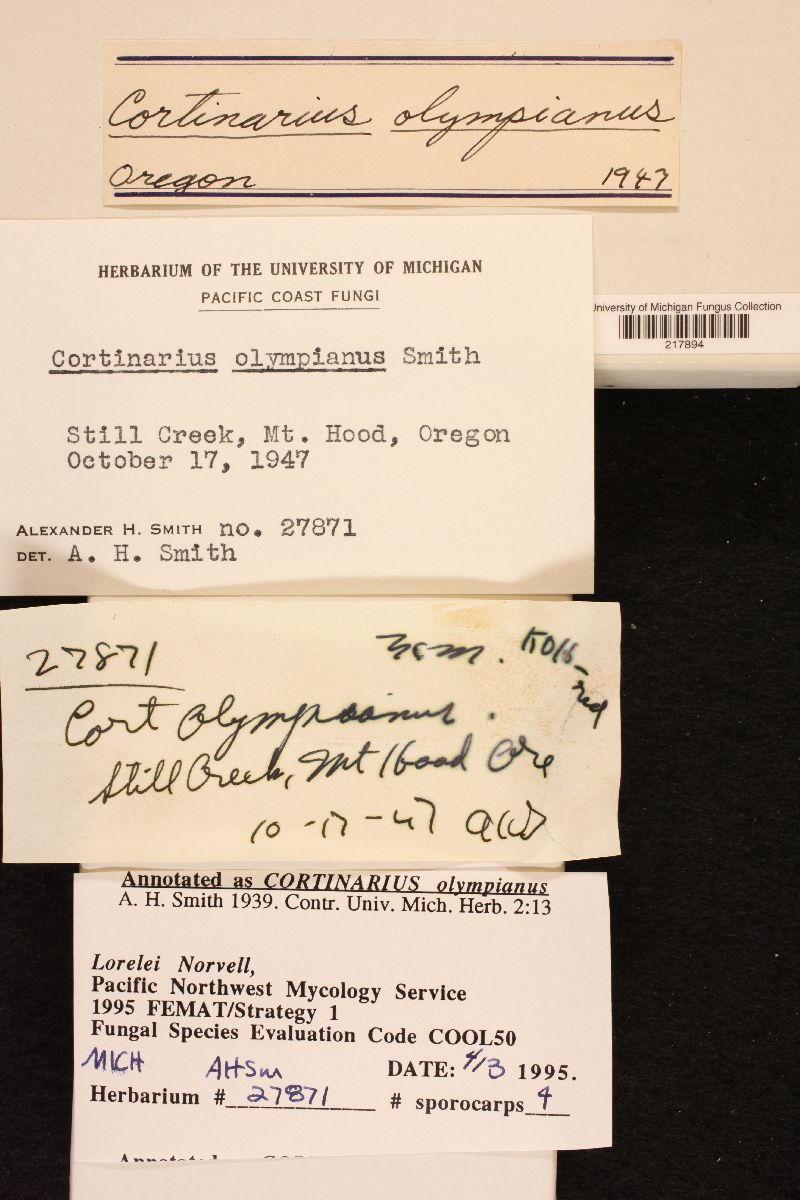 Cortinarius olympianus
Oregon 1947
HERBARIUM OF THE UNIVERSITY OF MICHIGAN
PACIFIC COAST FUNGI
Cortinarius olympianus Smith
Still Creek, Mt. Hood, Oregon
October 17, 1947
ALEXANDER H. SMITH no. 27871
DET. A. H. Smith
University of Michigan Fungus Collection
217894
27871 KOH-
red
Cort olympianus.
Still Creek, Mt Hood Ore
10-17-47
Annotated as CORTINARIUS olympianus
A. H. Smith 1939. Contr. Univ. Mich. Herb. 2:13
Lorelei Norvell,
Pacific Northwest Mycology Service
1995 FEMAT/Strategy 1
Fungal Species Evaluation Code COOL50
MICH AHSm DATE: 4/3 1995.
Herbarium # 27871 # sporocarps 4